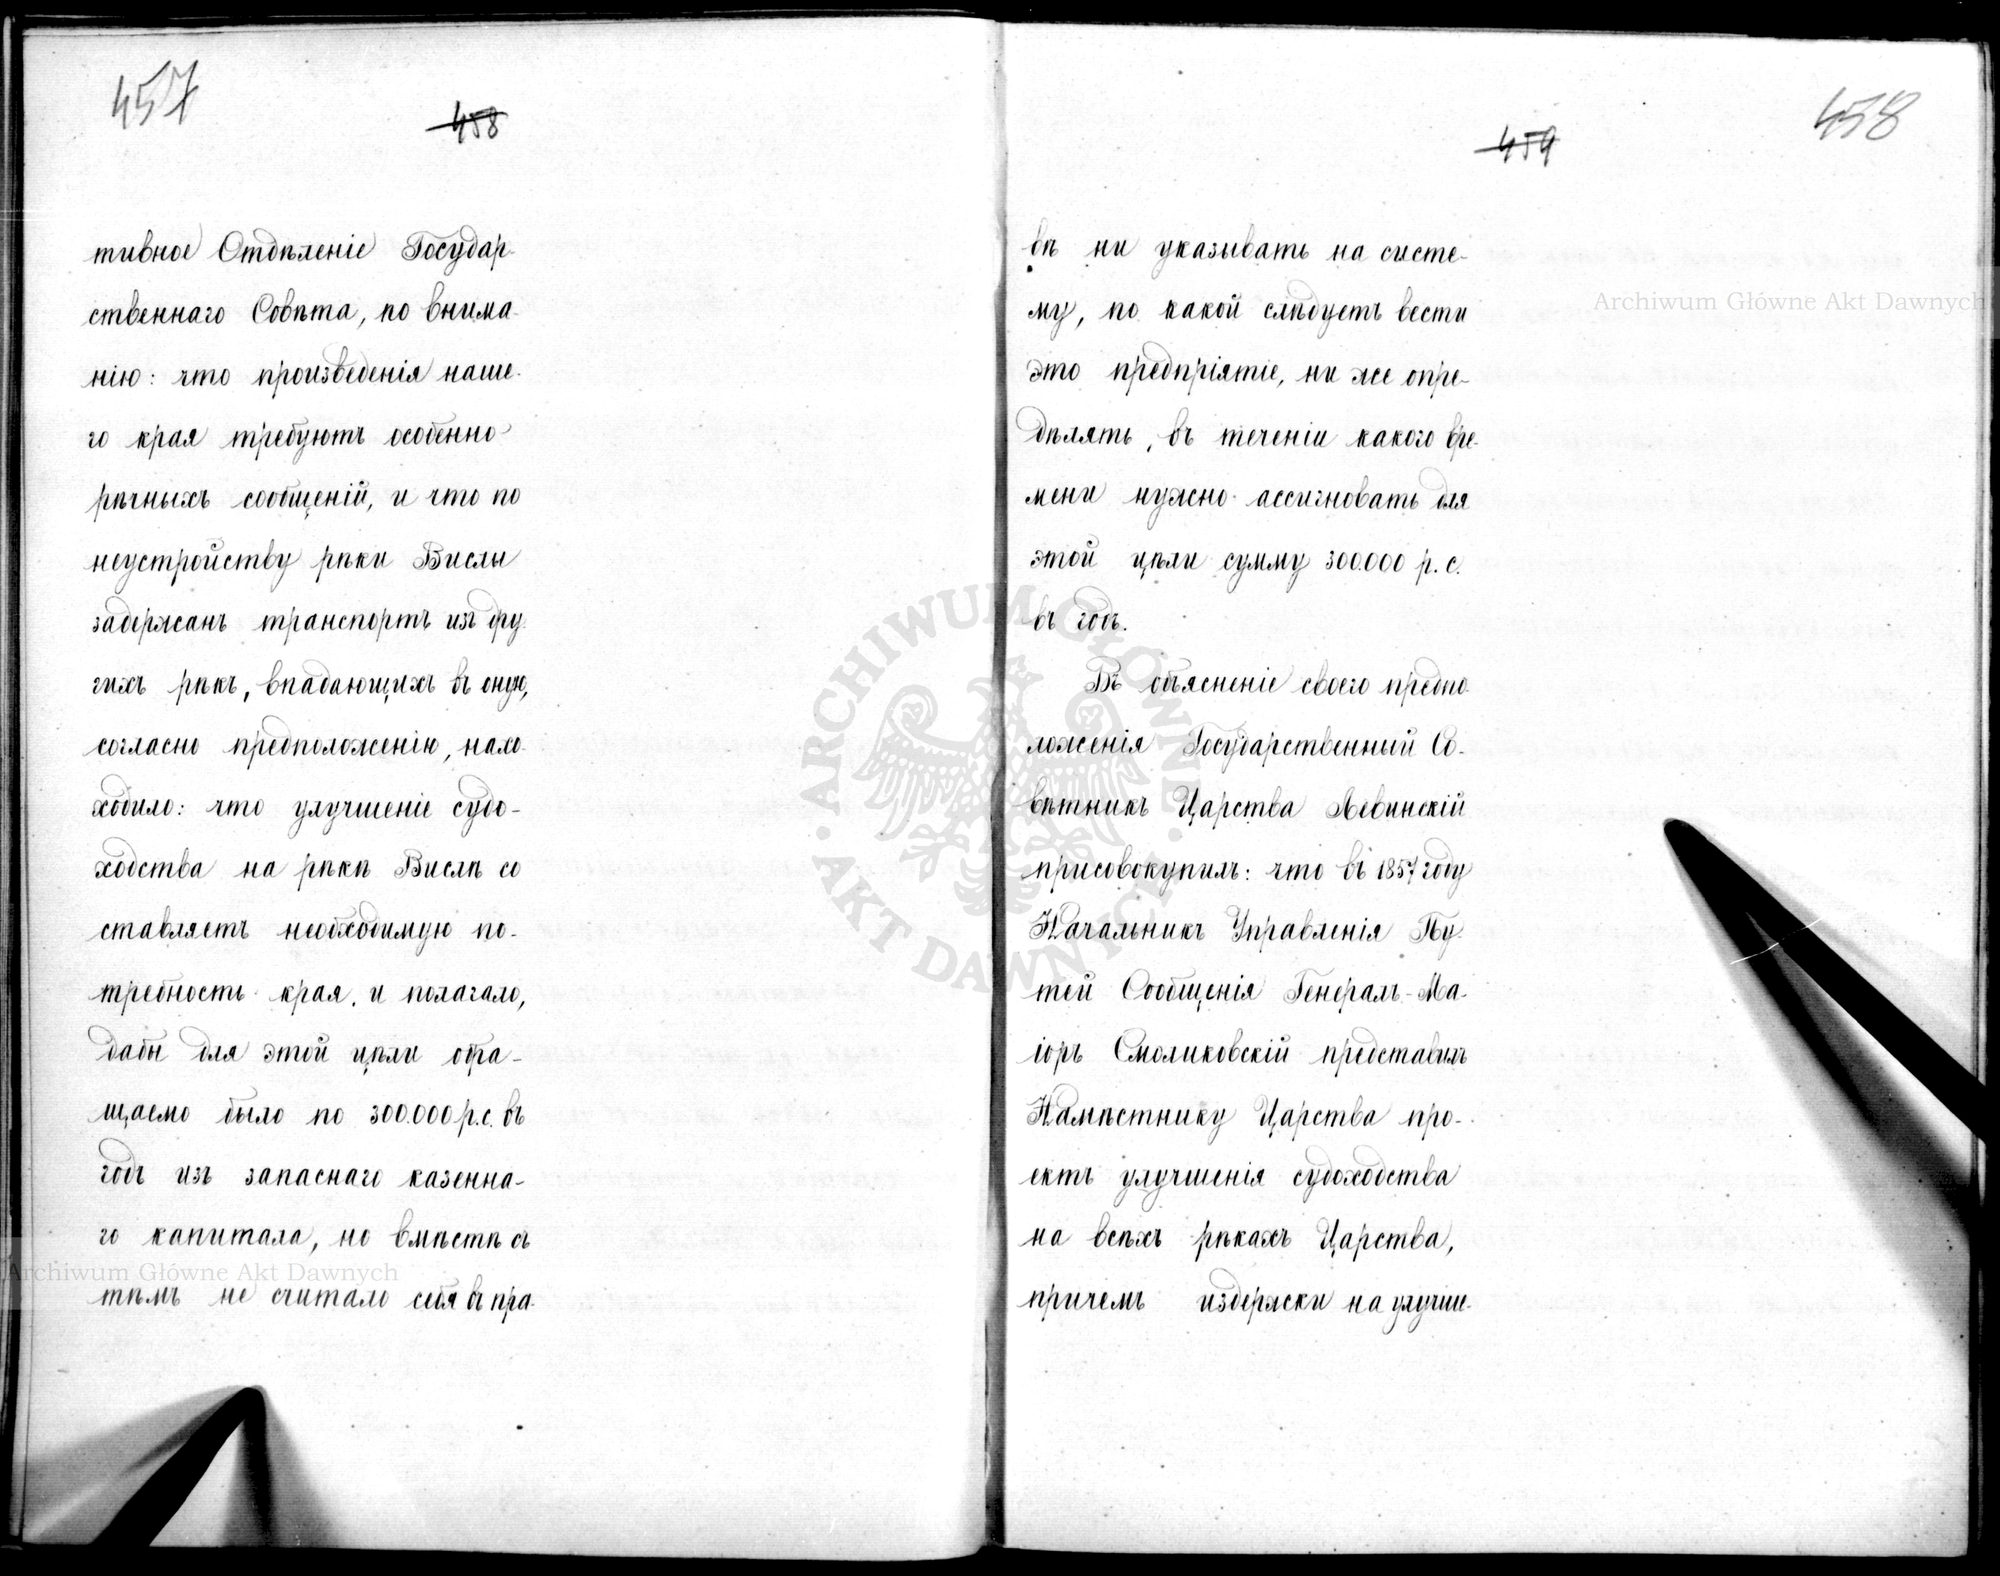 457
458
тивное Отдѣленіе Государ-
ственнаго Совѣта, по внима-
нію: что произведенія наше-
го края требуютъ особенно
рѣчныхъ сообщеній, и что по
неустройству рѣки Вислы
задержанъ транспортъ изъ дру-
гихъ рѣкъ, впадающихъ въ оную,
согласно предположенію, нахо-
ходило: что улучшеніе судо-
ходства на рѣкѣ Вислѣ со
ставляетъ необходимую по-
требность края, и полагало,
дабы для этой цѣли обра-
щаемо было по 300.000 р.с. въ
годъ изъ запаснаго казенна-
го капитала, но вмѣстѣ съ
тѣмъ не считало себя въ пра-
458
459
вѣ ни указывать на систе-
му, по какой слѣдуетъ вести
это предпріятіе, ни же опре-
дѣлять, въ теченіи какого вре-
мени нужно ассигновать для
этой цѣли сумму 300.000 р. с.
въ годъ.
Въ объясненіе своего предпо-
ложенія Государственный Со-
вѣтникъ Царства Левинскій
присовокупилъ: что въ 1857 году
Начальникъ Управленія Пу-
тей Сообщенія Генералъ-Ма-
іоръ Смоликовскій представилъ
Намѣстнику Царства про-
ектъ улучшенія судоходства
на всѣхъ рѣкахъ Царства,
причемъ издержки на улучше-
Archiwum Główne Akt Dawnych
Archiwum Główne Akt Dawnych
ARCHIWUM GŁÓWNE
AKT DAWNYCH